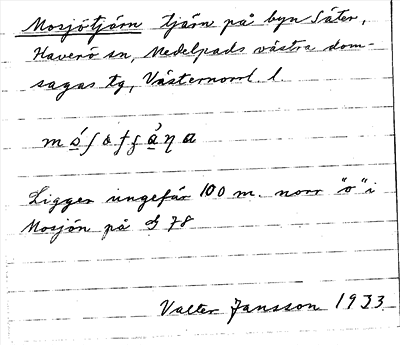 Mosjötjärn tjärn på byn Säter,
Haverö sn, Medelpads västra dom-
sagas tg, Västernorrl. l.
Ligger ungefär 100 m. norr "o" i
Mosjön på 78
Valter Jansson 1933